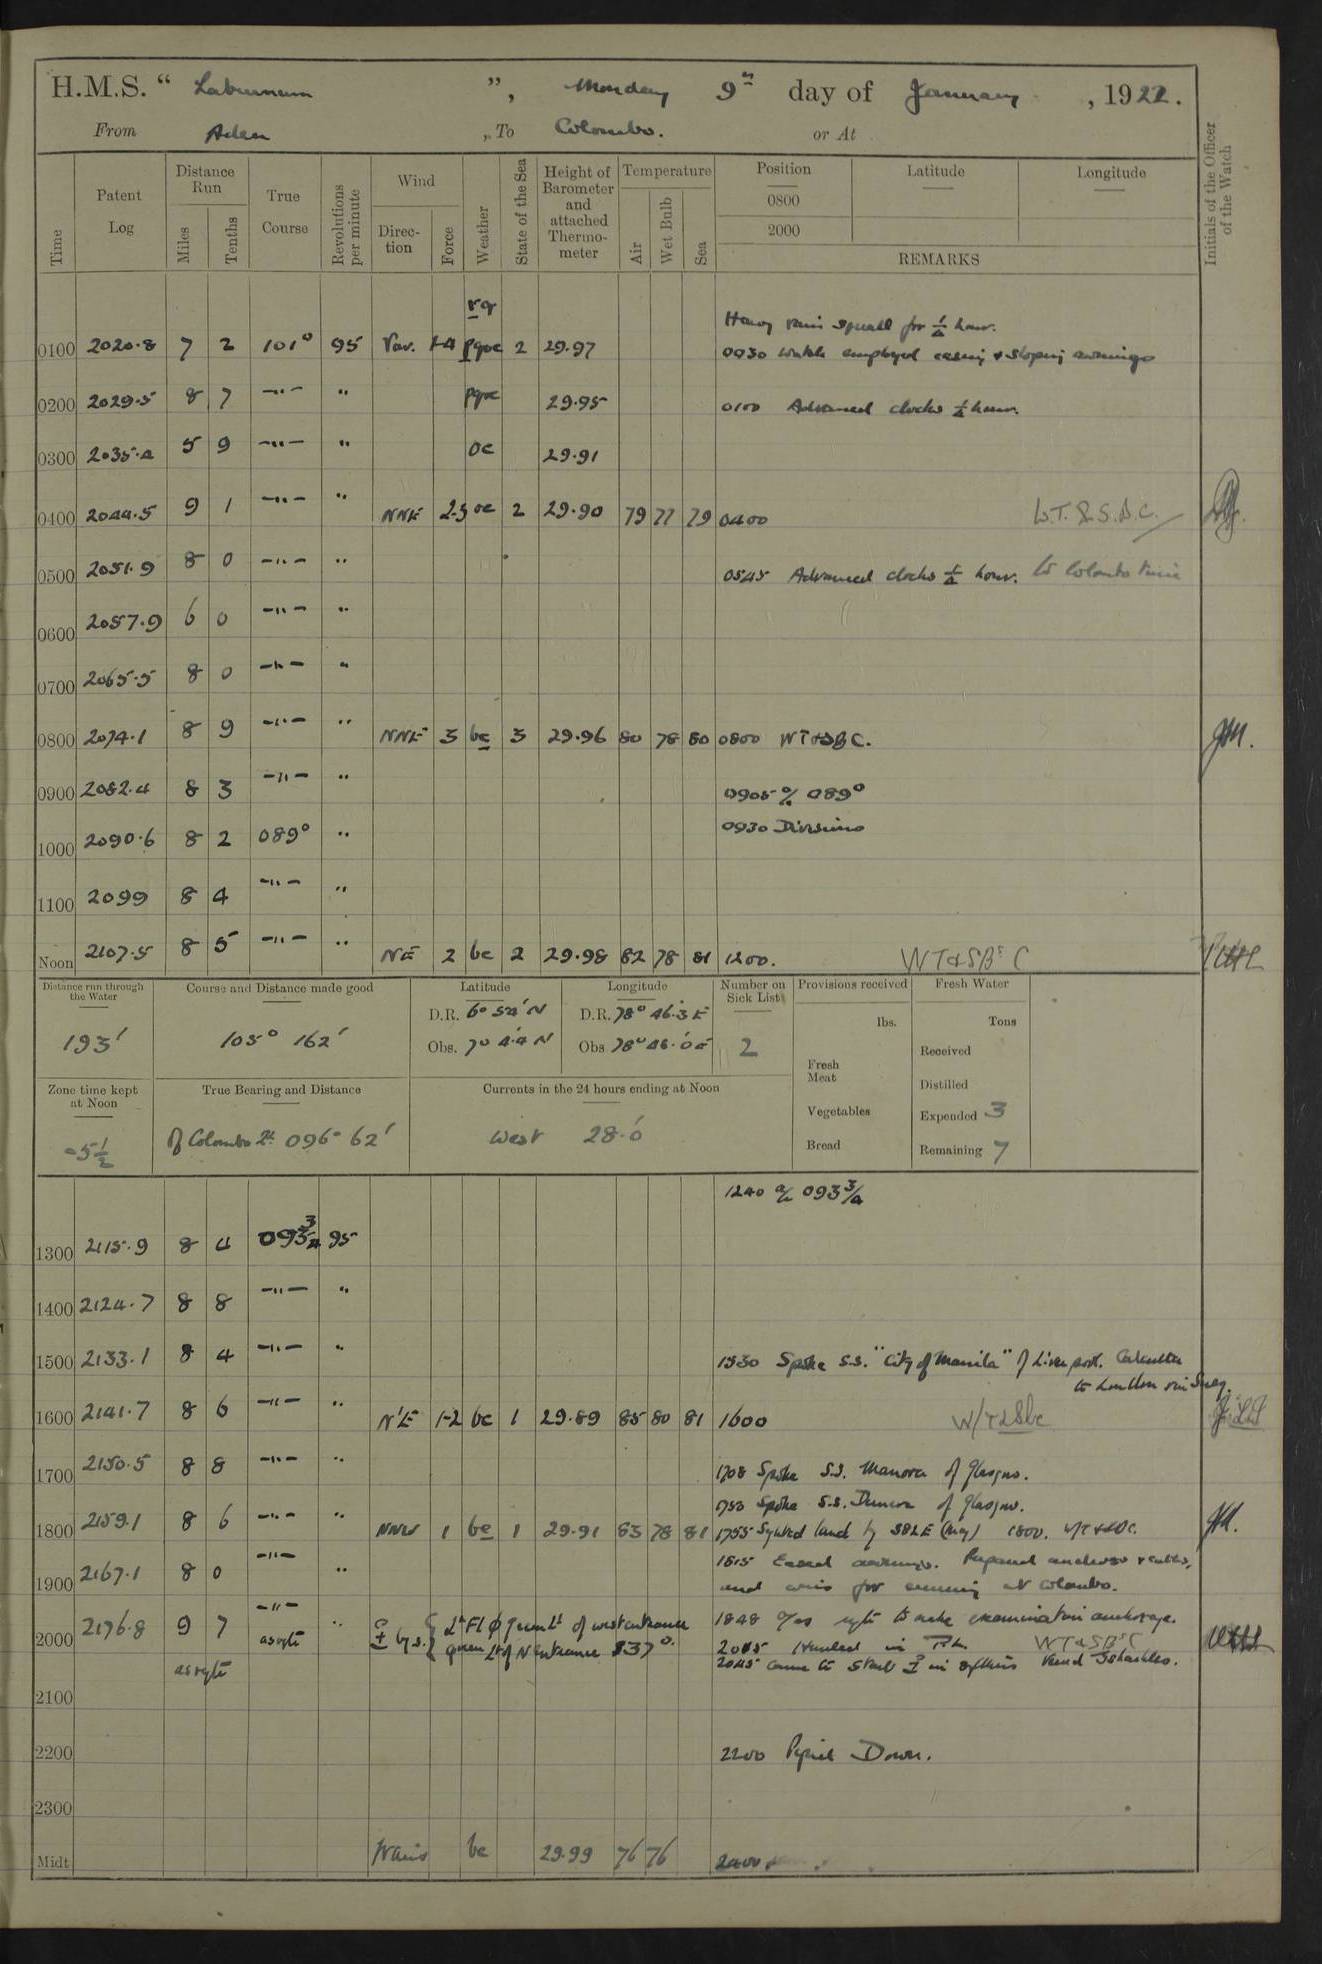 H.M.S. “ Laburnum ”, Monday 9th day of January, 1922.
From Aden „To Colombo. or At
Time
Patent Log
Distance Run
Miles
Tenths
True Course
Revolutions per minute
Wind
Direction
Force
Weather
State of the Sea
Height of Barometer and attached Thermometer
Temperature
Air
Wet Bulb
Sea
Position
0800
2000
Latitude
Longitude
REMARKS
Initials of the Officer of the Watch
Heavy rain squall for 1/4 hour.
0100 2020.8 7 2 101° 95 Var. 1-4 pqoc 2 29.97 0030 Watch employed easing & sloping awnings
0200 2029.5 8 7 —"— " pqoc 29.95 0100 Advanced clocks 1/4 hour.
0300 2035.4 5 9 —"— " oc 29.91
0400 2044.5 9 1 —"— " NNE 2-3 oc 2 29.90 79 77 79 0400 W.T. & S.B.C.
0500 2051.9 8 0 —"— " 0545 Advanced clocks 1/4 hour. to Colombo time
0600 2057.9 6 0 —"— "
0700 2065.5 8 0 —"— "
0800 2074.1 8 9 —"— " NNE 3 bc 3 29.96 80 78 80 0800 WT&SBC.
0900 2082.4 8 3 —"— " 0905 a/c 089°
1000 2090.6 8 2 089° " 0930 Divisions
1100 2099 8 4 —"— "
Noon 2107.5 8 5 —"— " NE 2 bc 2 29.98 82 78 81 1200. WT&SBs C
Distance run through the Water
193'
Course and Distance made good
105° 162'
Latitude
D.R. 6° 54' N
Obs. 7° 4.4 N
Longitude
D.R. 78° 46.3 E
Obs 78° 46.0 E
Number on Sick List
2
Provisions received
lbs.
Fresh Meat
Vegetables
Bread
Fresh Water
Tons
Received
Distilled
Expended 3
Remaining 7
Zone time kept at Noon
-5 1/2
True Bearing and Distance
Of Colombo Lt 096° 62'
Currents in the 24 hours ending at Noon
West 28.0'
1240 a/c 093 3/4
1300 2115.9 8 4 093 3/4 95
1400 2124.7 8 8 —"— "
1500 2133.1 8 4 —"— " 1530 Spoke S.S. "City of Manila" of Liverpool. Calcutta
to London via Suez.
1600 2141.7 8 6 —"— " N'E 1-2 bc 1 29.89 85 80 81 1600 W/T&Sbc
1700 2150.5 8 8 —"— " 1708 Spoke S.S. Manora of Glasgow.
1753 Spoke S.S. Dunera of Glasgow.
1800 2159.1 8 6 —"— " NNW 1 bc 1 29.91 83 78 81 1755 Sighted land by 1800. WT&SBC.
1900 2167.1 8 0 —"— " 1815 Eased awnings. Prepared anchors & cables,
and wires for coming at Colombo.
—"— 1848 Co as req to make examination anchorage.
2000 2176.8 9 7 as req " of west entrance green Lt of N entrance 137°. 2015 Handed in P.L. WT&SBsC
as req 2045 Came to Starb in 3 shackles.
2100
2200 2200 Piped Down.
2300
Midt bc 29.99 76 76 2400